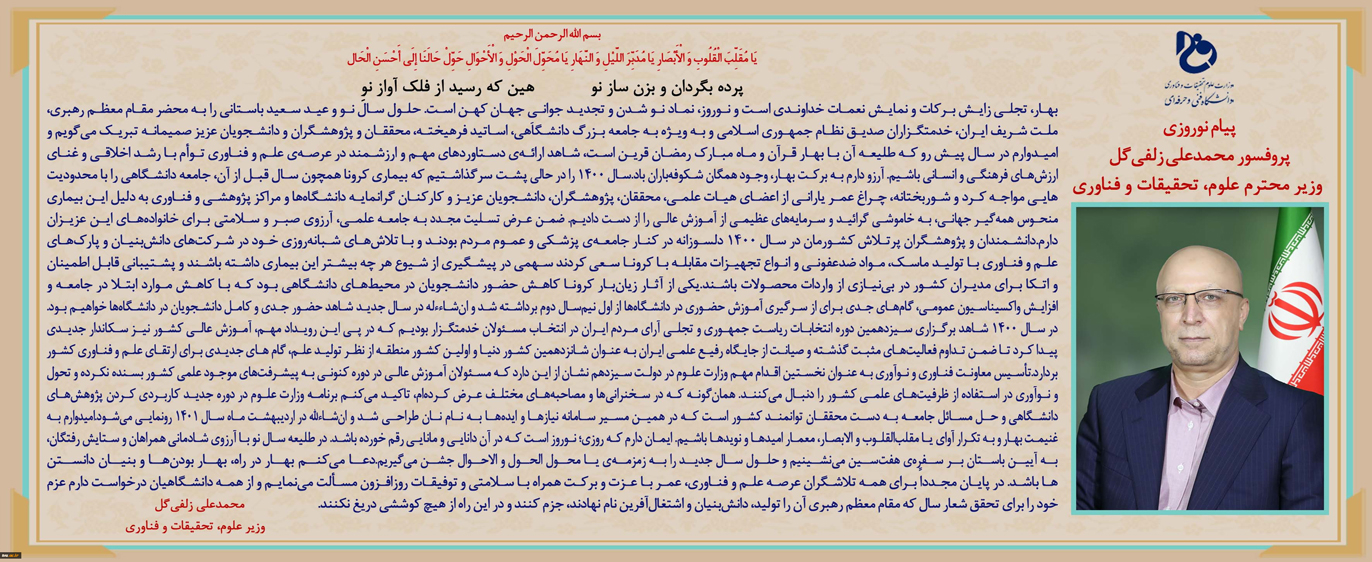 وزارت علوم تحقیقات و فناوری
دانشگاه فنی و حرفه‌ای
پیام نوروزی
پروفسور محمدعلی زلفی‌گل
وزیر محترم علوم، تحقیقات و فناوری
بسم الله الرحمن الرحیم
یَا مُقَلِّبَ الْقُلُوبِ وَ الْأَبْصَارِ یَا مُدَبِّرَ اللَّیْلِ وَ النَّهَارِ یَا مُحَوِّلَ الْحَوْلِ وَ الْأَحْوَالِ حَوِّلْ حَالَنَا إِلَی أَحْسَنِ الْحَالِ
پرده بگردان و بزن ساز نو هین که رسید از فلک آواز نو
بهار، تجلی زایش برکات و نمایش نعمات خداوندی است و نوروز، نماد نو شدن و تجدید جوانی جهان کهن است. حلول سال نو و عید سعید باستانی را به محضر مقام معظم رهبری،
ملت شریف ایران، خدمتگزاران صدیق نظام جمهوری اسلامی و به ویژه به جامعه بزرگ دانشگاهی، اساتید فرهیخته، محققان و پژوهشگران و دانشجویان عزیز صمیمانه تبریک می‌گویم و
امیدوارم در سال پیش رو که طلیعه آن با بهار قرآن و ماه مبارک رمضان قرین است، شاهد ارائه‌ی دستاوردهای مهم و ارزشمند در عرصه‌ی علم و فناوری توأم با رشد اخلاقی و غنای
ارزش‌های فرهنگی و انسانی باشیم. آرزو دارم به برکت بهار، وجود همگان شکوفه‌باران باد.سال ۱۴۰۰ را در حالی پشت سر گذاشتیم که بیماری کرونا همچون سال قبل از آن، جامعه دانشگاهی را با محدودیت
هایی مواجه کرد و شوربختانه، چراغ عمر یارانی از اعضای هیات علمی، محققان، پژوهشگران، دانشجویان عزیز و کارکنان گرانمایه دانشگاه‌ها و مراکز پژوهشی و فناوری به دلیل این بیماری
منحوس همه‌گیر جهانی، به خاموشی گرائید و سرمایه‌های عظیمی از آموزش عالی را از دست دادیم. ضمن عرض تسلیت مجدد به جامعه علمی، آرزوی صبر و سلامتی برای خانواده‌های این عزیزان
دارم.دانشمندان و پژوهشگران پرتلاش کشورمان در سال ۱۴۰۰ دلسوزانه در کنار جامعه‌ی پزشکی و عموم مردم بودند و با تلاش‌های شبانه‌روزی خود در شرکت‌های دانش‌بنیان و پارک‌های
علم و فناوری با تولید ماسک، مواد ضدعفونی و انواع تجهیزات مقابله با کرونا سعی کردند سهمی در پیشگیری از شیوع هر چه بیشتر این بیماری داشته باشند و پشتیبانی قابل اطمینان
و اتکا برای مدیران کشور در بی‌نیازی از واردات محصولات باشند.یکی از آثار زیان‌بار کرونا کاهش حضور دانشجویان در محیط‌های دانشگاهی بود که با کاهش موارد ابتلا در جامعه و
افزایش واکسیناسیون عمومی، گام‌های جدی برای از سرگیری آموزش حضوری در دانشگاه‌ها از اول نیم‌سال دوم برداشته شد و ان‌شاءله در سال جدید شاهد حضور جدی و کامل دانشجویان در دانشگاه‌ها خواهیم بود.
در سال ۱۴۰۰ شاهد برگزاری سیزدهمین دوره انتخابات ریاست جمهوری و تجلی آرای مردم ایران در انتخاب مسئولان خدمتگزار بودیم که در پی این رویداد مهم، آموزش عالی کشور نیز سکاندار جدیدی
پیدا کرد تا ضمن تداوم فعالیت‌های مثبت گذشته و صیانت از جایگاه رفیع علمی ایران به عنوان شانزدهمین کشور دنیا و اولین کشور منطقه از نظر تولید علم، گام های جدیدی برای ارتقای علم و فناوری کشور
بردارد.تأسیس معاونت فناوری و نوآوری به عنوان نخستین اقدام مهم وزارت علوم در دولت سیزدهم نشان از این دارد که مسئولان آموزش عالی در دوره کنونی به پیشرفت‌های موجود علمی کشور بسنده نکرده و تحول
و نوآوری در استفاده از ظرفیت‌های علمی کشور را دنبال می‌کنند. همان‌گونه که در سخنرانی‌ها و مصاحبه‌های مختلف عرض کرده‌ام، تاکید می‌کنم برنامه وزارت علوم در دوره جدید کاربردی کردن پژوهش‌های
دانشگاهی و حل مسائل جامعه به دست محققان توانمند کشور است که در همین مسیر سامانه نیازها و ایده‌ها به نام نان طراحی شد و ان‌شاءالله در اردیبهشت ماه سال ۱۴۰۱ رونمایی می‌شود.امیدوارم به
غنیمت بهار و به تکرار آوای یا مقلب‌القلوب و الابصار، معمار امیدها و نویدها باشیم. ایمان دارم که روزی؛ نوروز است که در آن دانایی و مانایی رقم خورده باشد. در طلیعه سال نو با آرزوی شادمانی همراهان و ستایش رفتگان،
به آیین باستان بر سفره‌ی هفت‌سین می‌نشینیم و حلول سال جدید را به زمزمه‌ی یا محول الحول و الاحوال جشن می‌گیریم.دعا می‌کنم بهار در راه، بهار بودن‌ها و بنیان دانستن
ها باشد. در پایان مجددا برای همه تلاشگران عرصه علم و فناوری، عمر با عزت و برکت همراه با سلامتی و توفیقات روزافزون مسألت می‌نمایم و از همه دانشگاهیان درخواست دارم عزم
خود را برای تحقق شعار سال که مقام معظم رهبری آن را تولید، دانش‌بنیان و اشتغال‌آفرین نام نهادند، جزم کنند و در این راه از هیچ کوششی دریغ نکنند.
محمدعلی زلفی‌گل
وزیر علوم، تحقیقات و فناوری